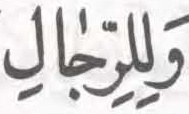 وَلِلرِّجٰالِ